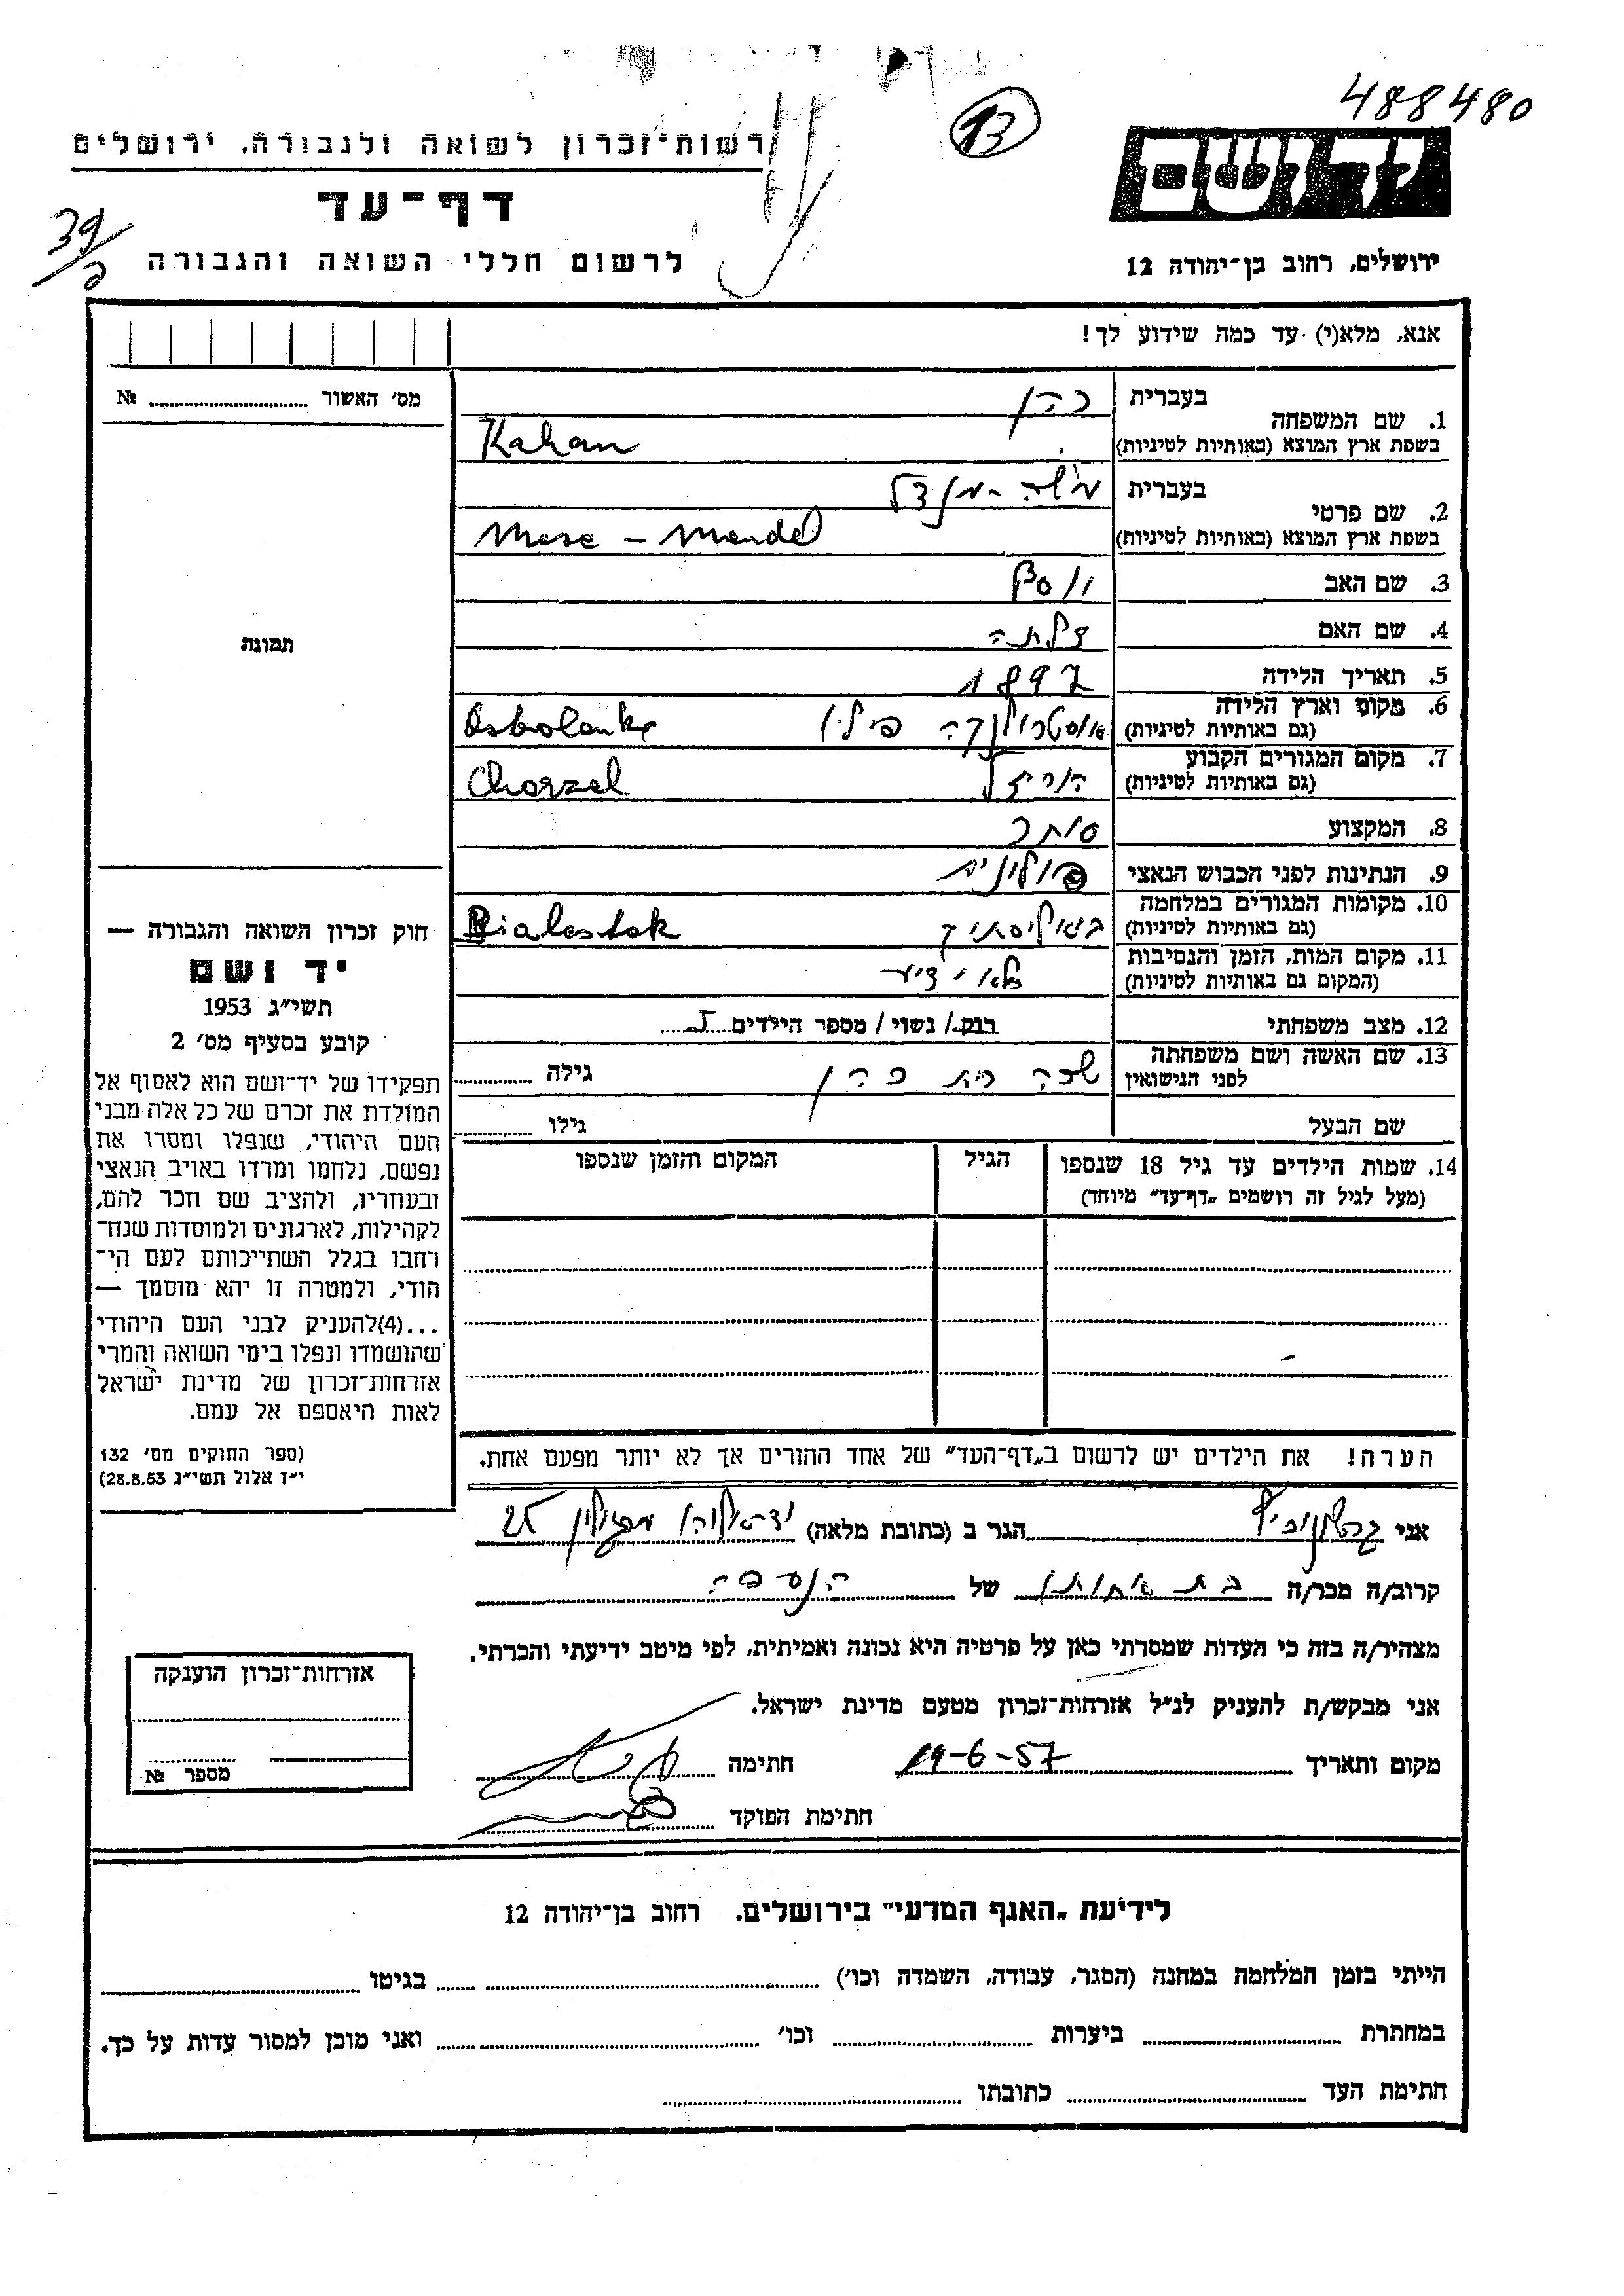 488480
13
יד ושם
רשות-זכרון לשואה ולגבורה, ירושלים
דף-עד
39/
לרשום חללי השואה והגבורה
ירושלים, רחוב בן-יהודה 12
אנא, מלא(י) עד כמה שידוע לך!
מס' האשור № 
1. שם המשפחה בעברית כהן
בשפת ארץ המוצא (באותיות לטיניות) Kahan
2. שם פרטי בעברית משה - מנדל
בשפת ארץ המוצא (באותיות לטיניות) Mose - Mendel
3. שם האב
4. שם האם זלתה
5. תאריך הלידה 1897
6. מקום וארץ הלידה (גם באותיות לטיניות) אוסטרולנקה פולין Ostolenka
7. מקום המגורים הקבוע (גם באותיות לטיניות) הורזל Chorzel
8. המקצוע סוחר
9. הנתינות לפני הכבוש הנאצי פולונית
10. מקומות המגורים במלחמה (גם באותיות לטיניות) ביאליסתוק Bialestok
11. מקום המות, הזמן והנסיבות (המקום גם באותיות לטיניות) לא ידוע
12. מצב משפחתי רווק / נשוי / מספר הילדים
13. שם האשה ושם משפחתה לפני הנישואין שרה בת כהן גילה
שם הבעל גילו
14. שמות הילדים עד גיל 18 שנספו (מעל לגיל זה רושמים "דף-עד" מיוחד)
הגיל
המקום והזמן שנספו
הערה! את הילדים יש לרשום ב"דף-העד" של אחד ההורים אך לא יותר מפעם אחת.
תמונה
חוק זכרון השואה והגבורה —
יד ושם
תשי"ג 1953
קובע בסעיף מס' 2
תפקידו של יד-ושם הוא לאסוף אל
המולדת את זכרם של כל אלה מבני
העם היהודי, שנפלו ומסרו את
נפשם, נלחמו ומרדו באויב הנאצי
ובעוזריו, ולהציב שם וזכר להם,
לקהילות, לארגונים ולמוסדות שנח-
רבו בגלל השתייכותם לעם הי-
הודי, ולמטרה זו יהא מוסמך —
...(4)להעניק לבני העם היהודי
שהושמדו ונפלו בימי השואה והמרי
אזרחות-זכרון של מדינת ישראל
לאות היאספם אל עמם.
(ספר החוקים מס' 132
י"ז אלול תשי"ג 28.8.53)
אני הגר ב (כתובת מלאה) 25
קרוב/ה מכר/ה בת אחותו של הנספה
מצהיר/ה בזה כי העדות שמסרתי כאן על פרטיה היא נכונה ואמיתית, לפי מיטב ידיעתי והכרתי.
אני מבקש/ת להעניק לנ"ל אזרחות-זכרון מטעם מדינת ישראל.
מקום ותאריך 19-6-57 חתימה
חתימת הפוקד
אזרחות-זכרון הוענקה
מספר №
לידיעת "האגף המדעי" בירושלים. רחוב בן-יהודה 12
הייתי בזמן המלחמה במחנה (הסגר, עבודה, השמדה וכו') בגיטו
במחתרת ביערות וכו' ואני מוכן למסור עדות על כך.
חתימת העד כתובתו